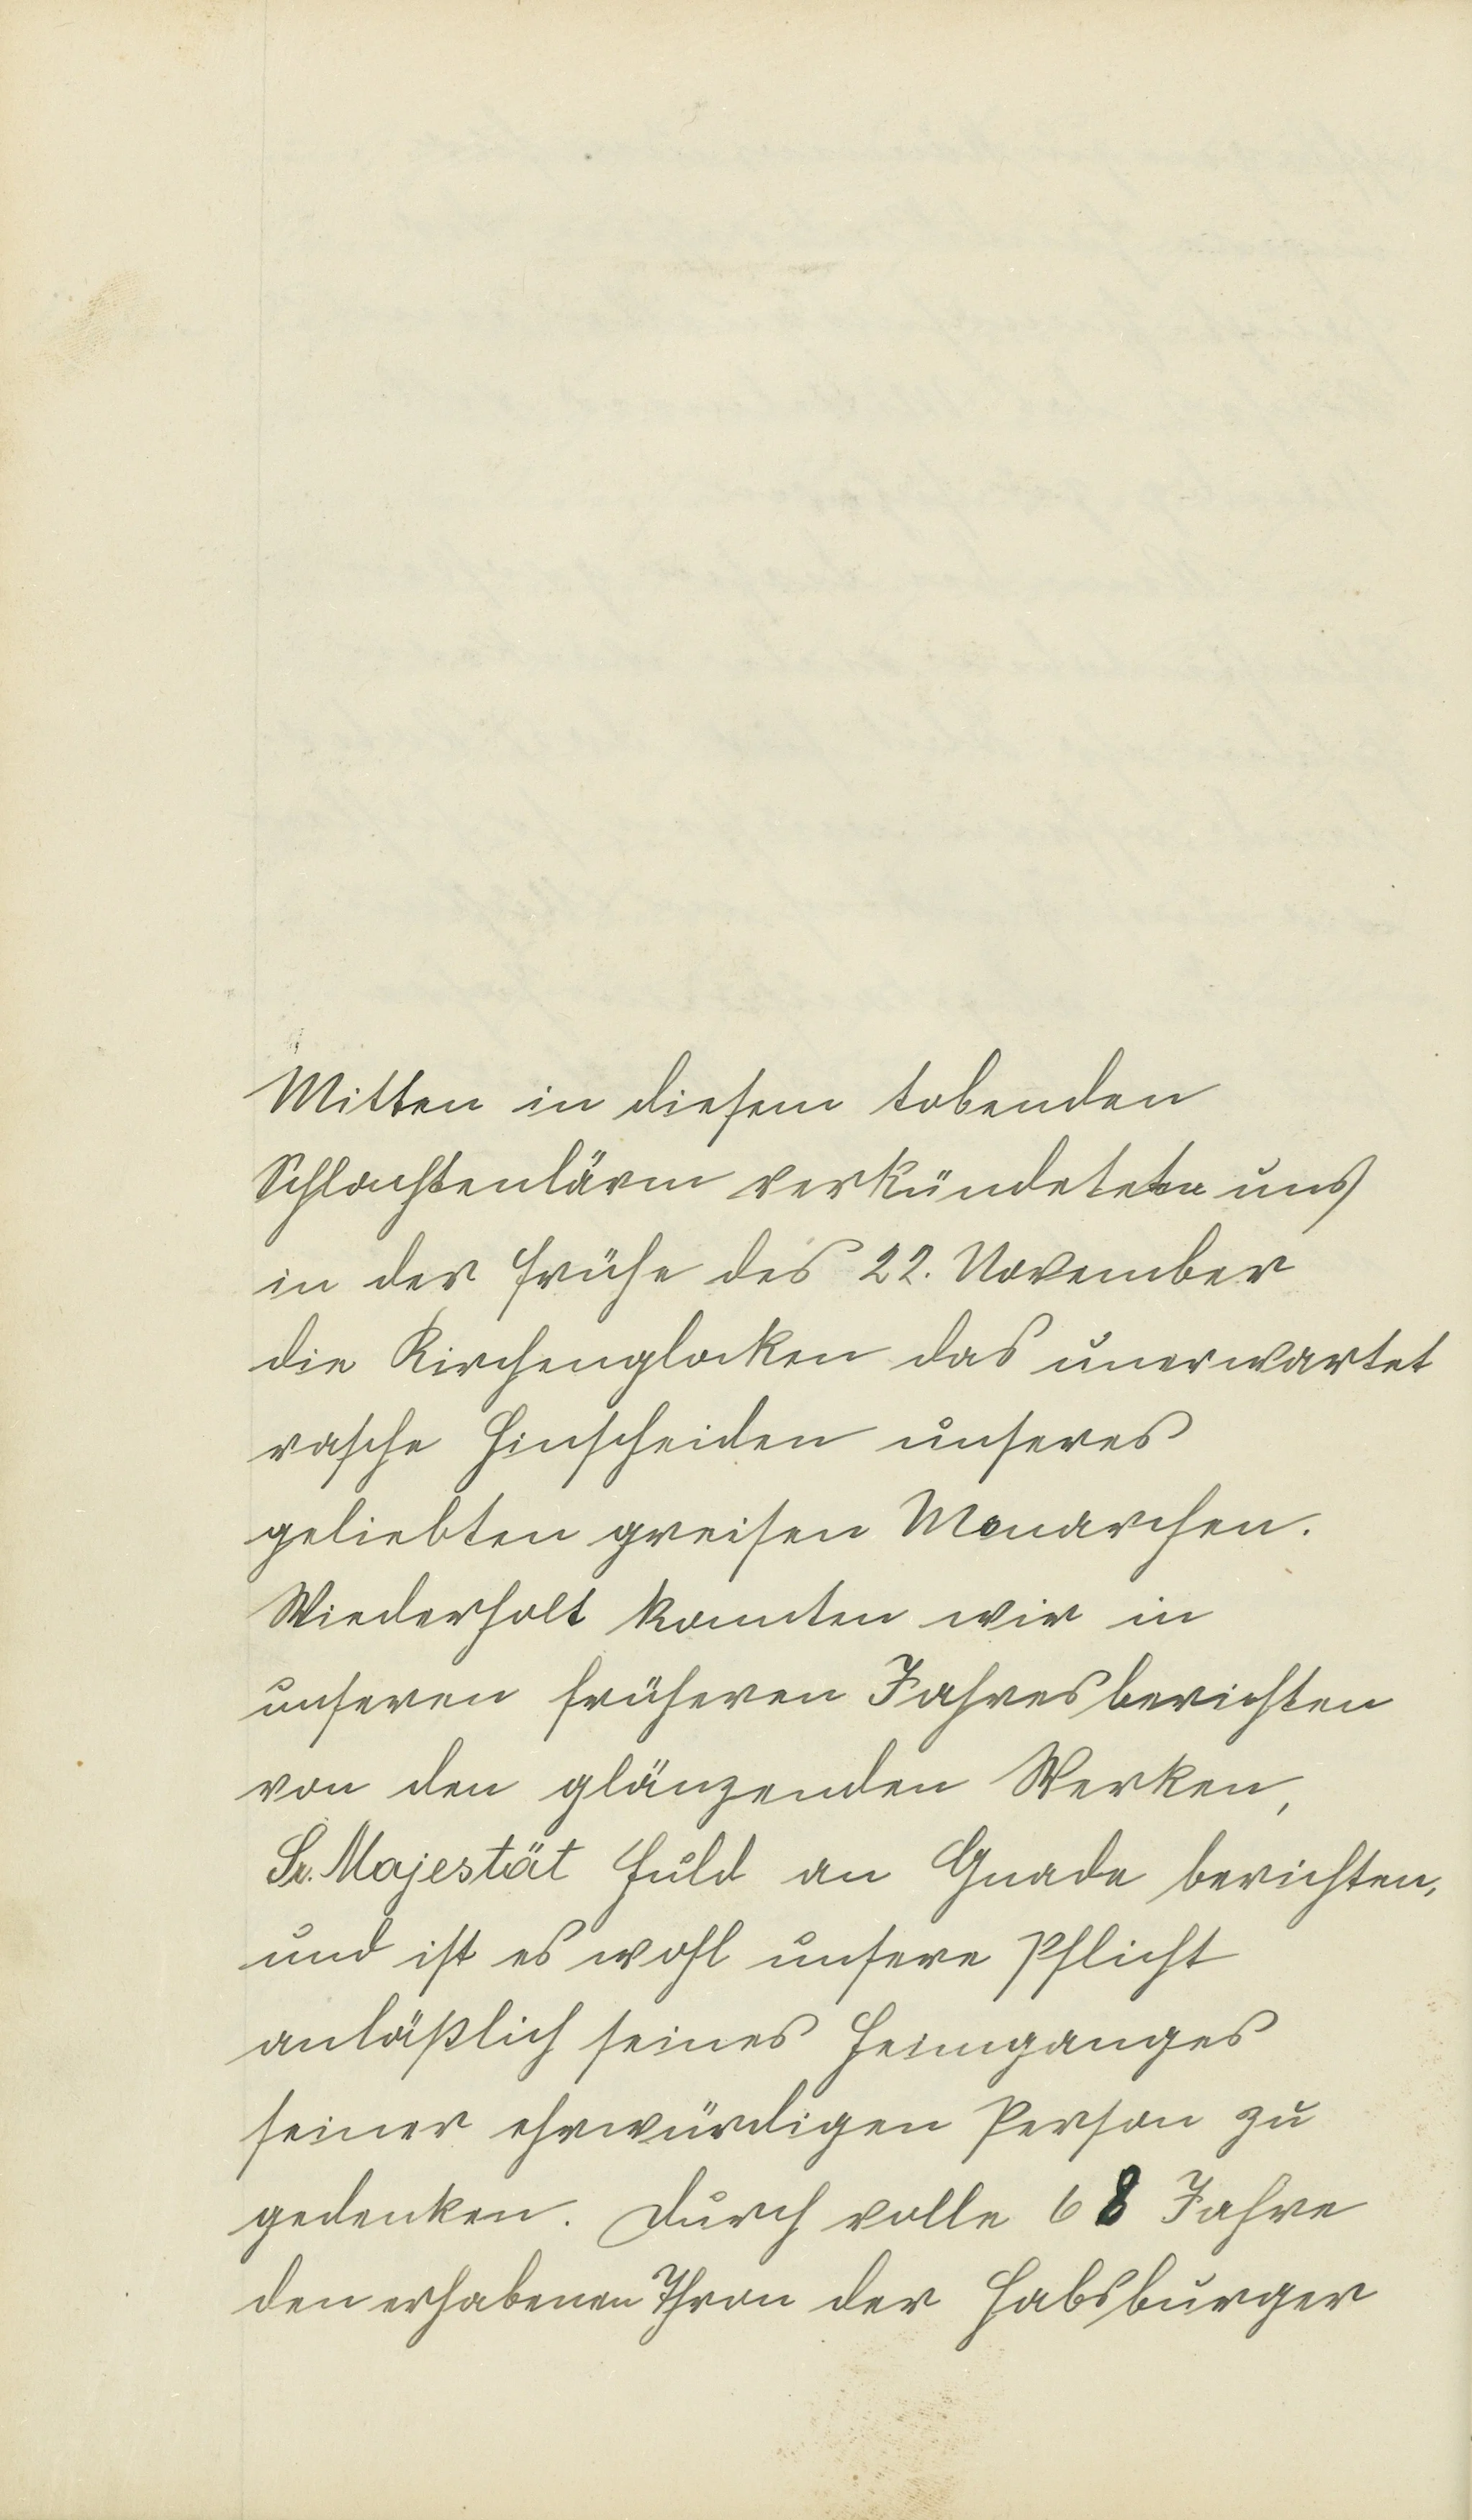 Mitten in diesem tobenden
Schlachtenlärm verkündeten uns
in der Frühe des 22. November
die Kirchenglocken das unerwartet
rasche Hinscheiden unseres
geliebten greisen Monarchen.
Wiederholt konnten wir in
unseren früheren Jahresberichten
von den glänzenden Werken,
Sr. Majestät Huld an Gnade berichten,
und ist es wohl unsere Pflicht
anläßlich seines Heimganges
seiner ehrwürdigen Person zu
gedenken. Durch volle 68 Jahre
den erhabenen Thron der Habsburger